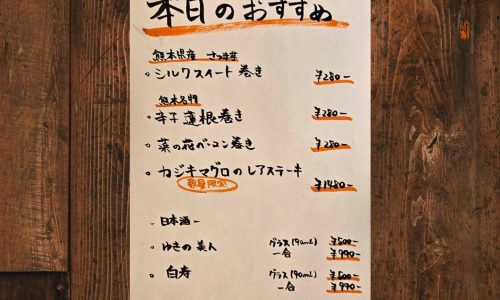 本日のおすすめ
熊本県産 さつま芋
・シルクスイート巻き ¥280-
熊本名物
・辛子蓮根巻き ¥280-
・菜の花ベーコン巻き ¥280-
・カジキマグロのレアステーキ ¥1480-
数量限定
- 日本酒 -
・ゆきの美人 グラス(90ml) ¥500-
一合 ¥990-
・白寿 グラス(90ml) ¥500-
一合 ¥990-